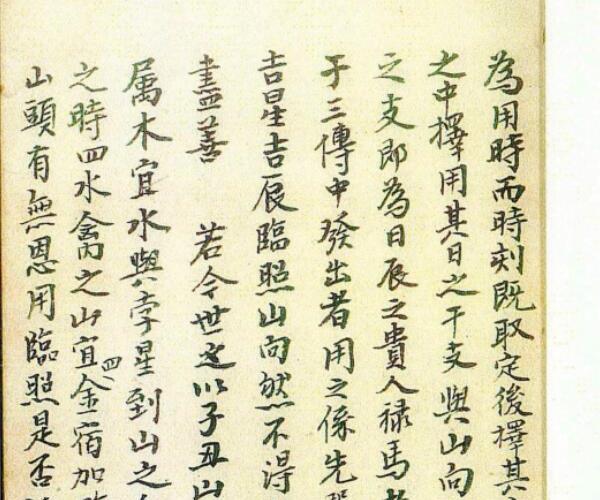 為用時而時刻既取定後擇其
之中擇用其日之干支與山向
之支即為日辰之貴人祿馬
于三傳中發出者用之係先
吉星吉辰臨照山向然不得
盡善 若今世之以子丑山
属木宜水與孛星到山之
之時四水禽之山宜四金宿加
山頭有無恩用臨照是否